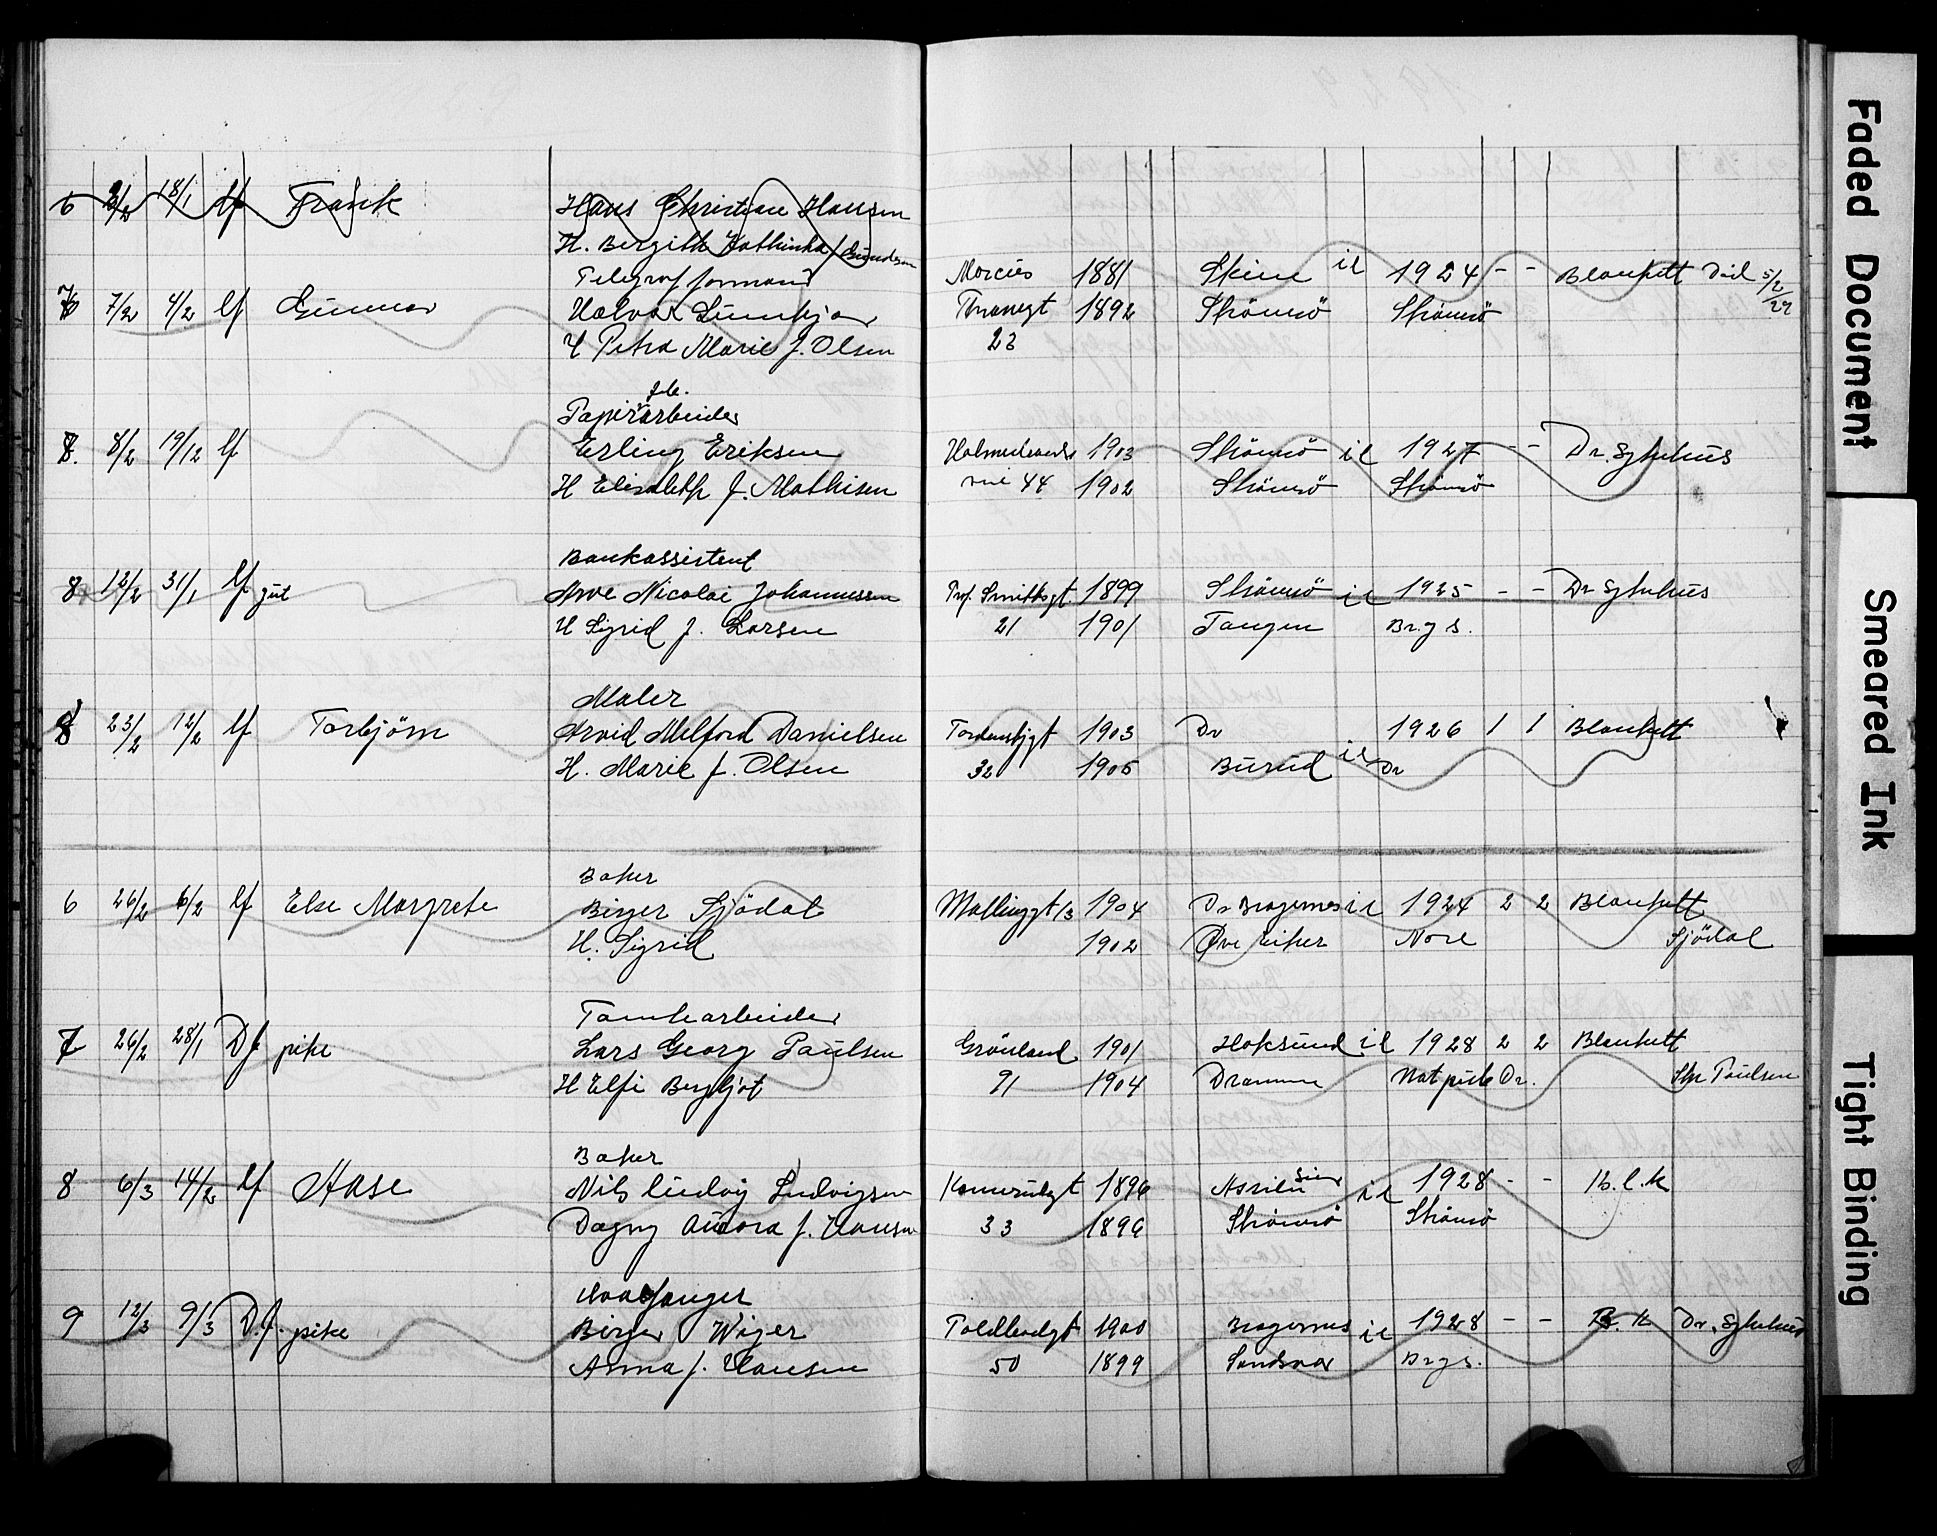 6 2/2 18/1 lf Frank Hans Christian Hansen
H. Bergith Kathinka Gundersen
Telegrafformand Marcus 1881 Skien il 1924 - - Blankett Død 5/2 29
7 7/2 4/2 lf Gunnar Halvor Thranesgt 1892 Strømsø Strømsø
H Petra Marie f. Olsen 23
fb.
Papirarbeider
8. 8/2 19/12 lf Erling Eriksen 1903 Strømsø il 1927 - - Dr. Sykehus
H Elisabeth f. Mathisen vei 44 1902 Strømsø Strømsø
Bankassistent
8 12/2 31/1 lf gut Arve Nicolai Johannessen Prf. Smithsgt. 1899 Strømsø il 1925 - - Dr Sykehus
H Sigrid f. Larsen 21 1901 Tangen Brgs.
Maler
8 23/2 12/2 lf Torbjørn Arvid Milford Danielsen Tordenskjgt 1903 Dr 1926 1 1 Blankett
H. Marie f. Olsen 32 1905 Burud il Dr
Baker
6 26/2 6/2 lf Else Margrete Birger Sjödal Mallinggt 13 1904 Dr Bragernes il 1924 2 2 Blankett
H. Sigrid 1902 Øvre Eiker Nore Sjödal
Tomtearbeider
7 26/2 28/1 D f pike Lars Georg Paulsen Grønland 1901 Hoksund il 1928 2 2 Blankett
H Elfi Bergljot 91 1904 Drammen Dr. Paulsen
Baker
8 6/3 14/2 lf Aase Nils Ludvig Ludvigsen 1896 il 1928 - -
Dagny Aurora f. Hansen 33 1896 Strømsø Strømsø
9 12/3 9/3 D.f. pike Birger Wiger Toldbodgt 1900 Bragernes il 1928 - - Dr. Sykehus
Anna f. Hansen 50 1899 Sandsvær Brgs.
Faded Document
Smeared Ink
Tight Binding